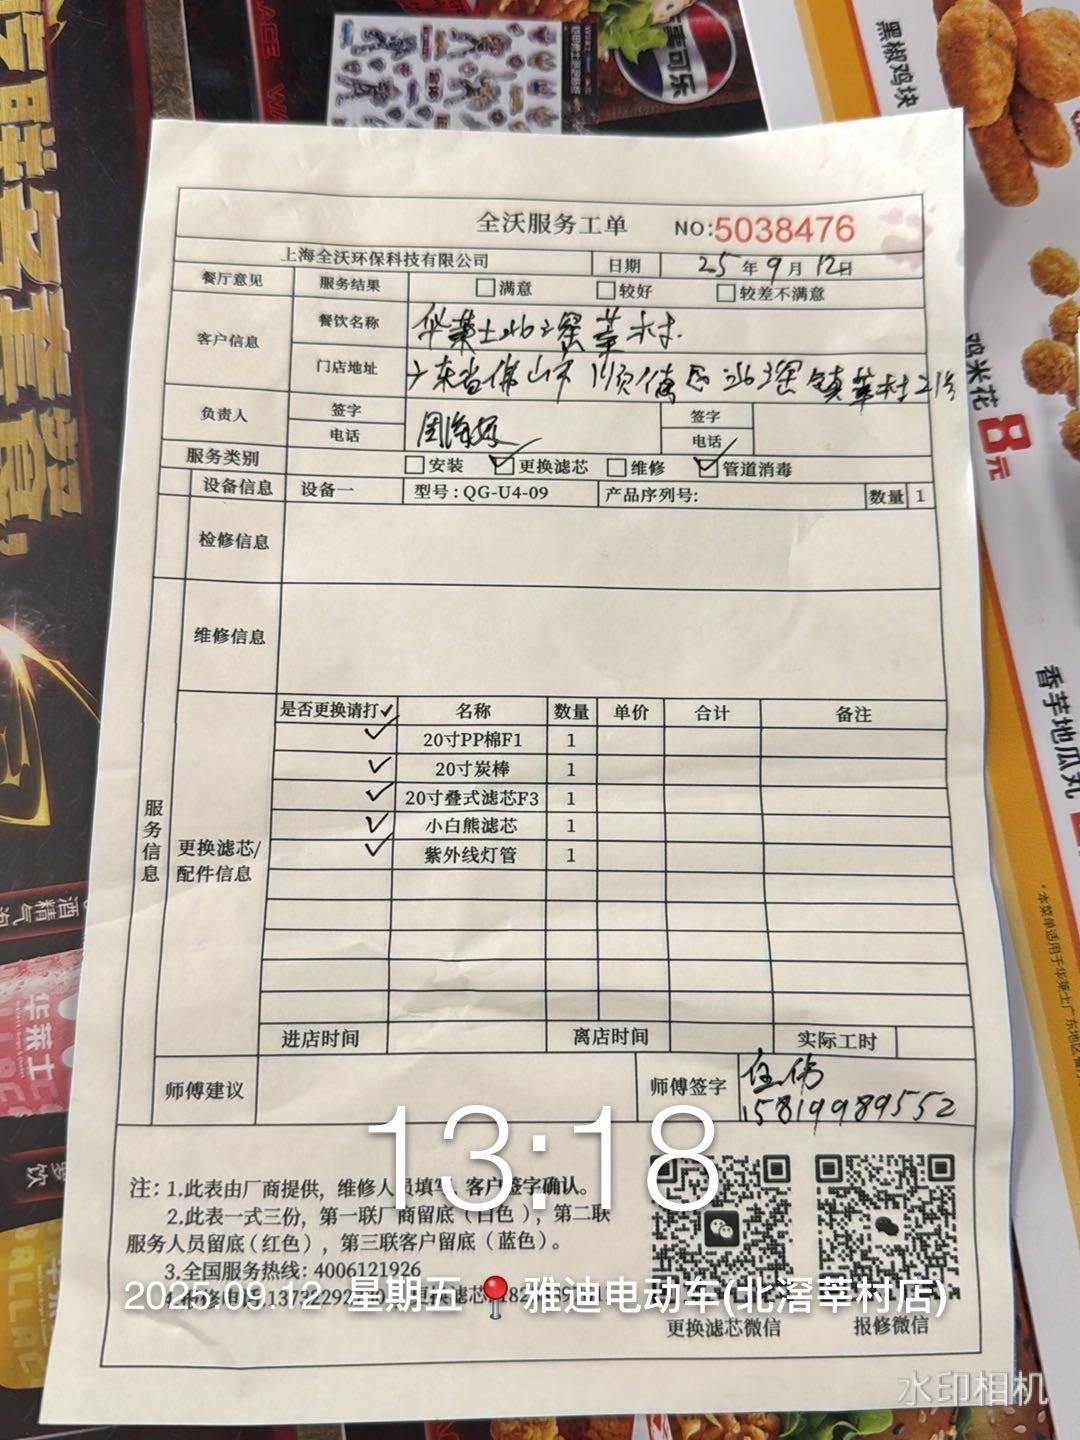 黑椒鸡块
百事可乐
全沃服务工单 NO:5038476
上海全沃环保科技有限公司 日期 25年9月12日
餐厅意见 服务结果 □满意 □较好 □较差不满意
客户信息 餐饮名称 华莱士北滘莘村
门店地址 广东省佛山市顺德区北滘镇莘村21号
负责人 签字 签字
电话 电话
服务类别 □安装 ☑更换滤芯 □维修 ☑管道消毒
设备信息 设备一 型号:QG-U4-09 产品序列号: 数量 1
检修信息
维修信息
服务信息
更换滤芯/
配件信息
是否更换请打✓ 名称 数量 单价 合计 备注
✓ 20寸PP棉F1 1
✓ 20寸炭棒 1
✓ 20寸叠式滤芯F3 1
✓ 小白熊滤芯 1
✓ 紫外线灯管 1
进店时间 离店时间 实际工时
师傅建议 师傅签字 任伟
15819989552
13:18
注: 1.此表由厂商提供，维修人员填写，客户签字确认。
2.此表一式三份，第一联厂商留底（白色），第二联
服务人员留底(红色)，第三联客户留底（蓝色）。
3.全国服务热线: 4006121926
2025.09.12 星期五 雅迪电动车(北滘莘村店)
更换滤芯微信 报修微信
水印相机
鸡米花
8元
香芋地瓜丸
华莱士